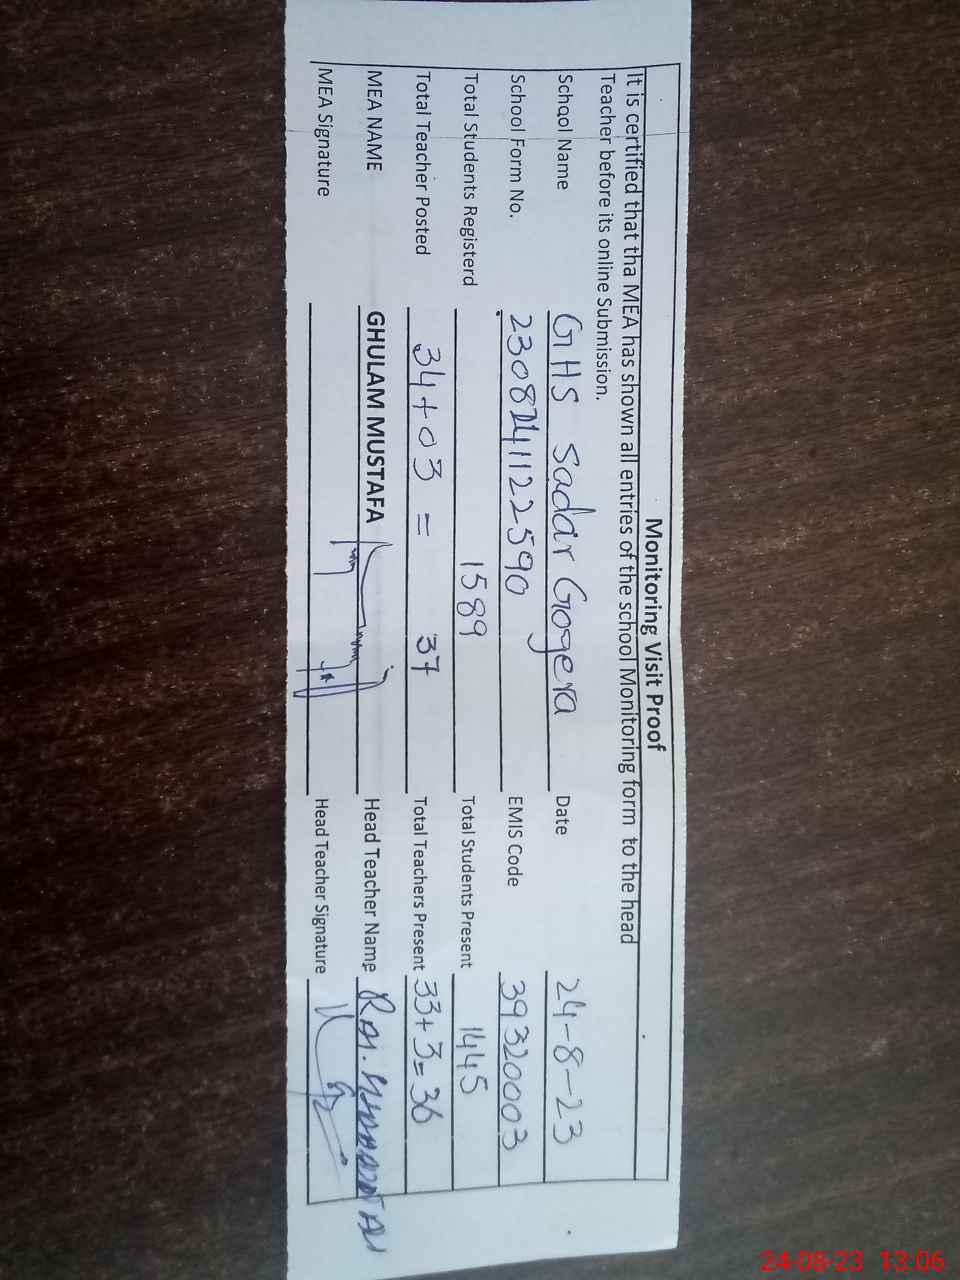 Monitoring Visit Proof
It is certified that tha MEA has shown all entries of the school Monitoring form to the head
Teacher before its online Submission.
School Name GHS Sadar Gogera Date 24-8-23
School Form No. EMIS Code 39320003
Total Students Registerd 1589 Total Students Present 1445
Total Teacher Posted 34+03 = 37 Total Teachers Present 33+3=36
MEA NAME GHULAM MUSTAFA Head Teacher Name RAI.
MEA Signature Head Teacher Signature
24-08-23 13:06